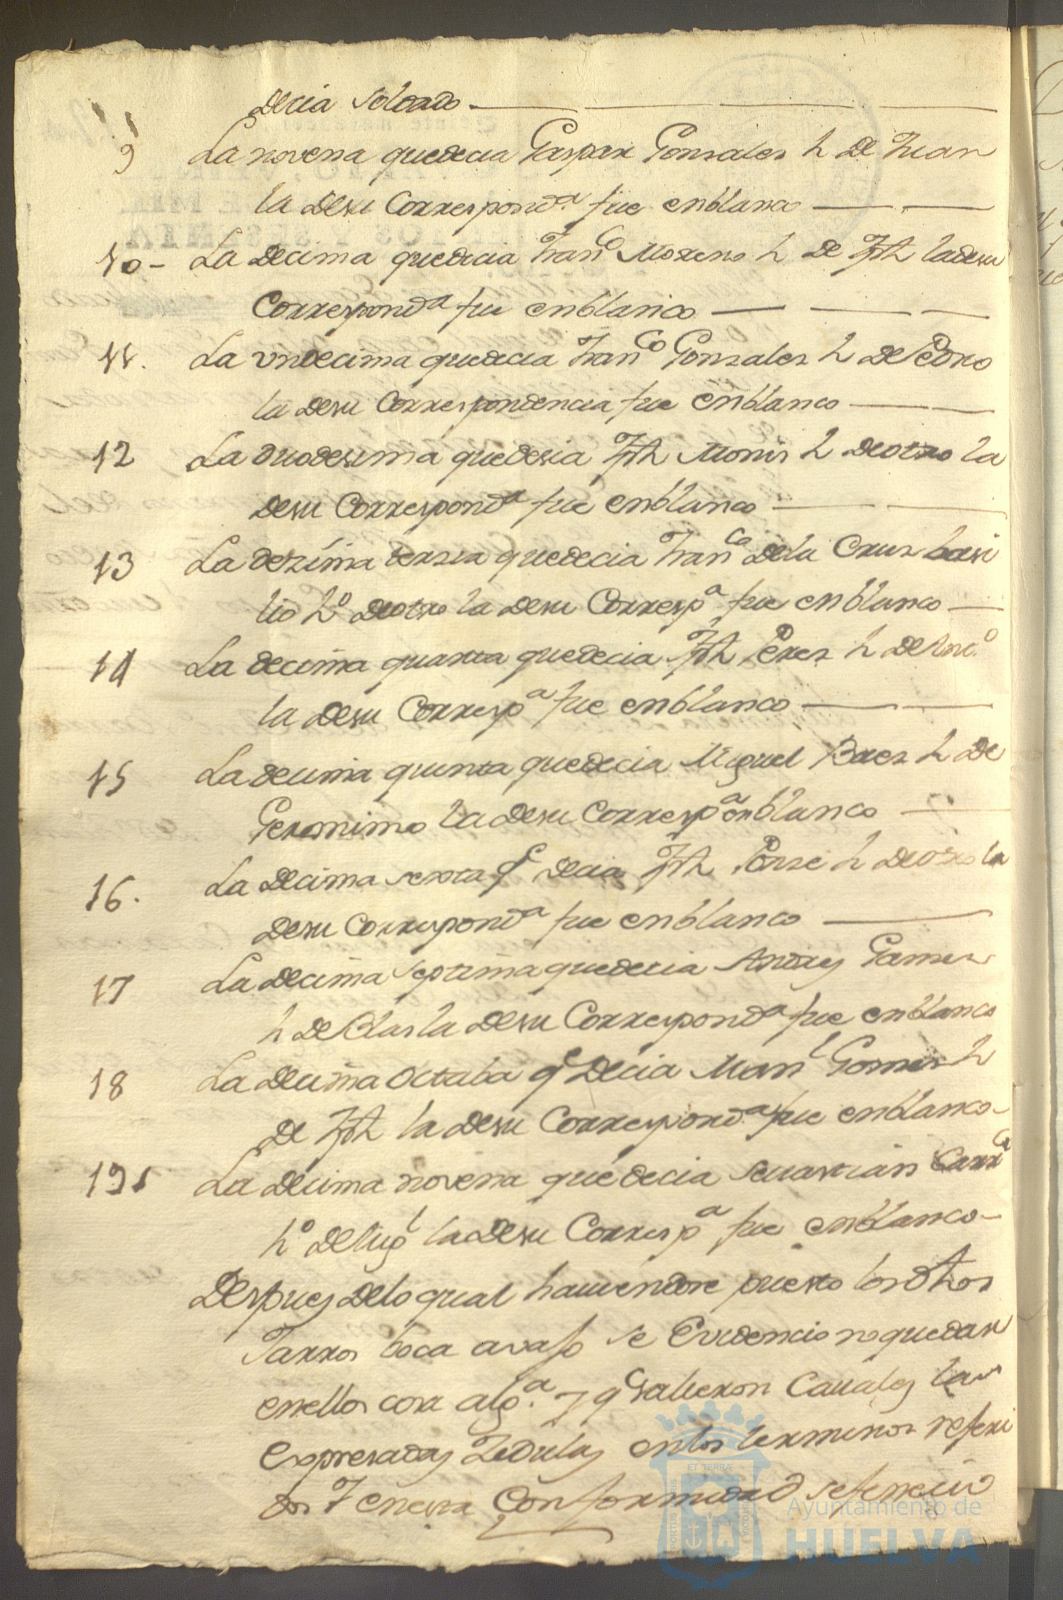 decia soldado
9 La novena quedecia Gaspar Gonzales h de Juan
la desu Correspond.a fue enblanco
10- La decima quedecia Fran.co Moreno h de Jph ladesu
Correspond.a fue enblanco
11. La undecima quedecia Fran.co Gonzales h de Pedro
la desu Correspondencia fue enblanco
12 La duodesima quedesia Jph Monis h deotro la
desu Correspond.a fue enblanco
13 La dezima tersia quedecia Fran.co dela Cruz basi
lio h.o deotro la desu Corresp.a fue enblanco
14 La decima quarta quedecia Jph Perez h de
la desu Corresp.a fue enblanco
15 La decima quinta quedecia Miguel Baez h de
Geronimo la desu Corresp.a enblanco
16. La decima sexta q.e decia Jph Ponze h deotro la
desu Correspond.a fue enblanco
17 La decima septima quedecia Andres Gamez
h de Blas la desu Correspond.a fue enblanco
18 La decima Octaba q.e decia Man.l Gomez h
de Jph la desu Correspond.a fue enblanco-
19 La decima novena quedecia Sevastian
h.o de la desu Corresp.a fue enblanco-
Despues delo qual haviendose puesto los dhos
Jarros boca avajo se Evidencio no quedar
enellos cosa alg.a y q.e salieron Cavales las
Expresadas Zedulas enlos terminos referi
dos Y enesta Conformidad sefenecio
ET TERRÆ
PORTUS
Ayuntamiento de
HUELVA